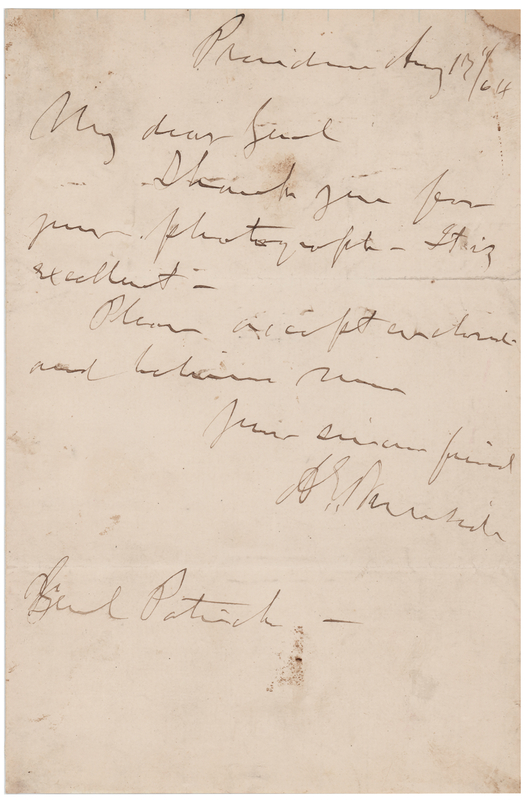 Providence Aug 17th/64
My dear Genl
Thank you for
your photograph - It is
excellent -
Please accept enclosed
and believe me
Your sincere friend
A E. Burnside
Genl Patrick -